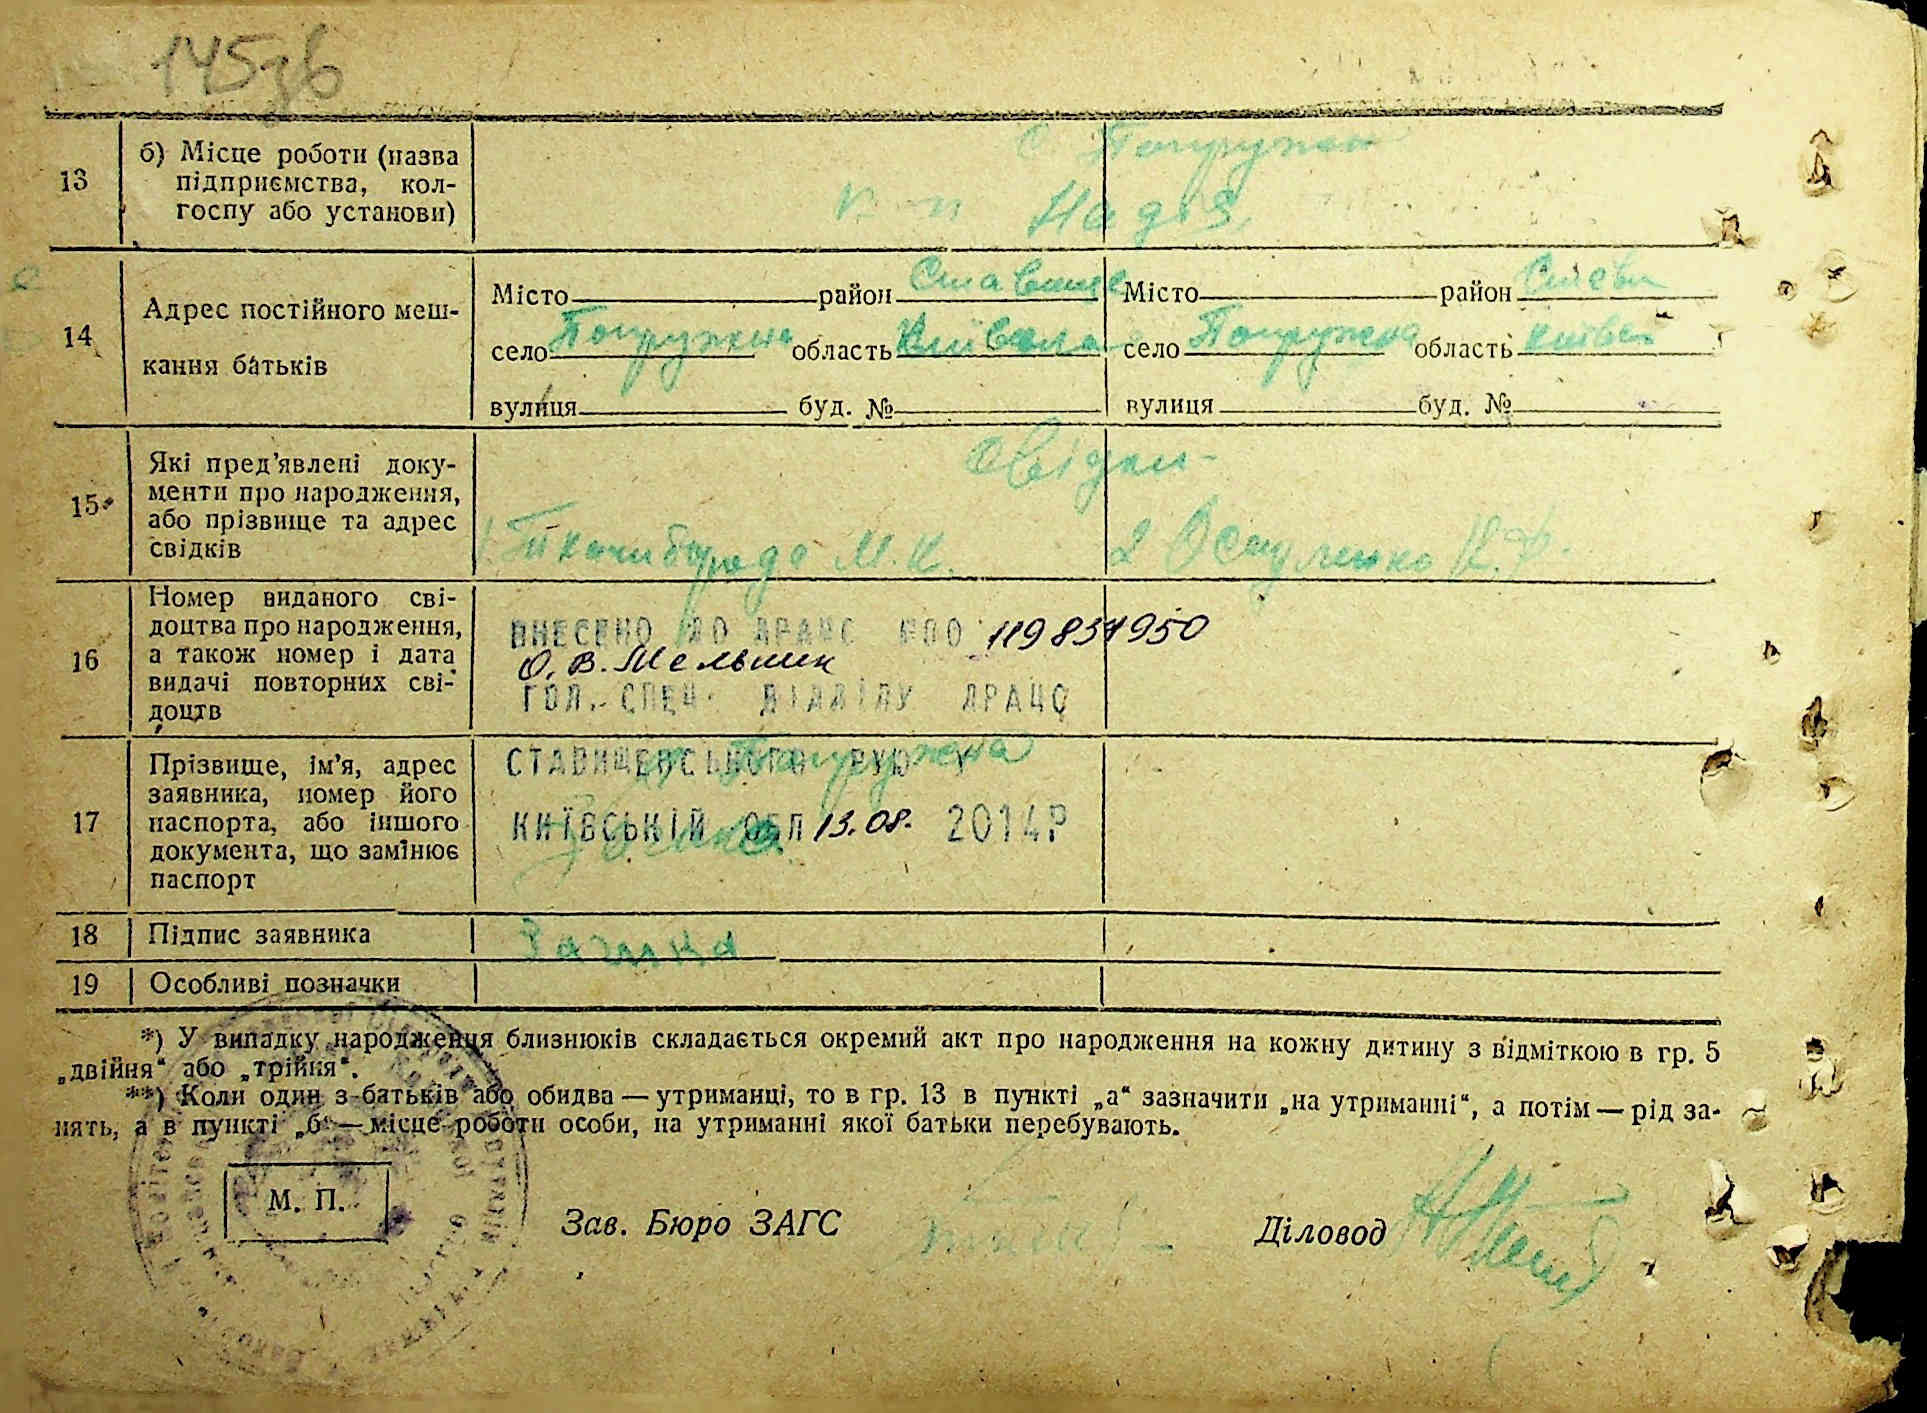 145зв
13
б) Місце роботи (назва
підприємства, кол-
госпу або установи)
с. Попружна
к-п Надія
14
Адрес постійного меш-
кання батьків
Місто район Ставище
село Попружна область Київська
вулиця буд. №
Місто район Стави
село Попружна область Київс
вулиця буд. №
15
Які пред’явлені доку-
менти про народження,
або прізвище та адрес
свідків
Свідки-
М. К.
2 К. Ф.
16
Номер виданого сві-
доцтва про народження,
а також номер і дата
видачі повторних сві-
доцтв
ВНЕСЕНО ДО ДРАЦС 119834950
О. В. Мельник
ГОЛ. СПЕЦ. ВІДДІЛУ ДРАЦС
17
Прізвище, ім’я, адрес
заявника, номер його
паспорта, або іншого
документа, що замінює
паспорт
СТАВИЩЕНСЬКОГО РУЮ У
Попружна
КИЇВСЬКІЙ ОБЛ 13.08. 2014Р
18
Підпис заявника
19
Особливі позначки
*) У випадку народження близнюків складається окремий акт про народження на кожну дитину з відміткою в гр. 5
„двійня“ або „трійня“.
**) Коли один з батьків або обидва — утриманці, то в гр. 13 в пункті „а“ зазначити „на утриманні“, а потім — рід за-
нять, а в пункті „б“ — місце роботи особи, на утриманні якої батьки перебувають.
М. П.
Зав. Бюро ЗАГС
Діловод